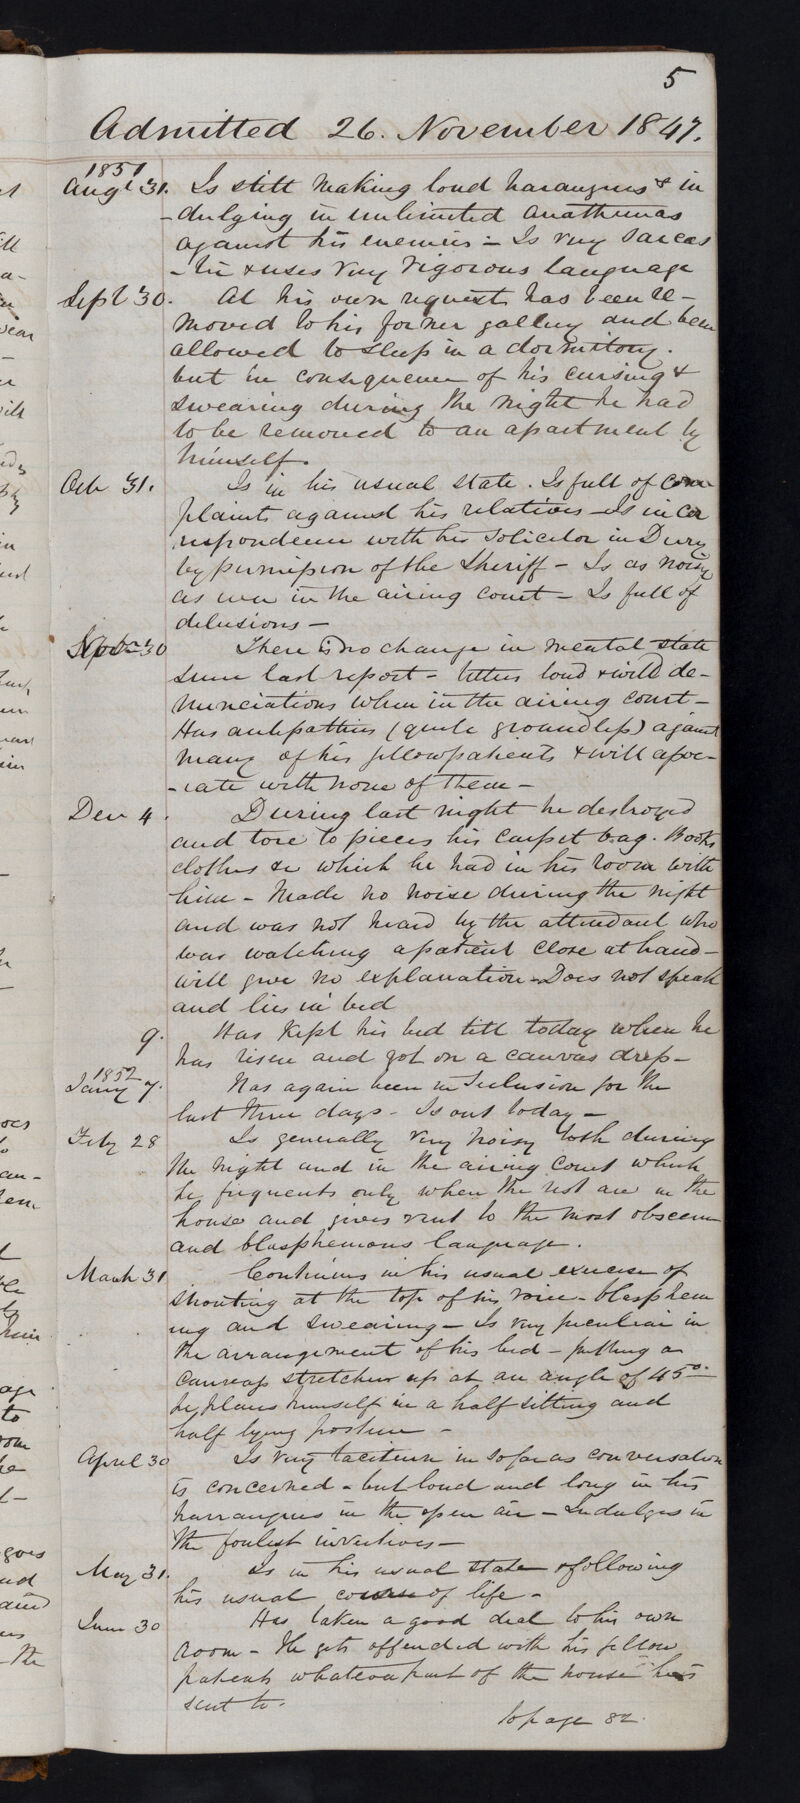 5
Admitted 26. November 1847.
1851
Augt 31. Is still making loud harangues & in
-dulging in unlimited anathemas
against his enemies - Is very sarcas
-tic & uses very vigorous language
Sept 30. At his own request has been re-
moved to his former gallery and been
allowed to sleep in a dormitory.
but in consequence of his cursing &
swearing during the night he had
to be removed to an apartment by
himself.
Oct 31. Is in his usual state. Is full of com
plaints against his relatives - Is in cor
respondence with his solicitor in
by permission of the Sheriff - Is as noisy
as ever in the airing court - Is full of
delusions -
30 There is no change in mental state
since last report - Utters loud & wild de-
nunciations when in the airing court -
Has antipathies (quite groundless) against
many of his fellow patients & will assoc-
-iate with none of them -
Decr 4. During last night he destroyed
and tore to pieces his carpet bag. Books
clothes &c which he had in his room with
him - Made no noise during the night
and was not heard by the attendant who
was watching a patient close at hand -
will give no explanation - Does not speak
and lies in bed
9. Has kept his bed till today when he
has risen and got on a canvas dress -
1852
Jany 7. Has again been in Seclusion for the
last three days - Is out today -
Feby 28 Is generally very noisy both during
the night and in the airing court which
he frequents only when the rest are in the
house and gives vent to the most obscene
and blasphemous language.
March 31 Continues in his usual exercise of
shouting at the top of his voice - blasphem
ing and swearing - Is very peculiar in
the arrangement of his bed - putting a
canvass stretcher up at an angle of 45°
he places himself in a half sitting and
half lying posture -
April 30 Is very taciturn in so far as conversation
is concerned - but loud and long in his
harrangues in the open air - Indulges in
the foulest invectives -
May 31. Is in his usual state & following
his usual course of life -
June 30 Has taken a good deal to his own
room - He gets offended with his fellow
patients whatever part of the house he is
sent to.
to page 82.